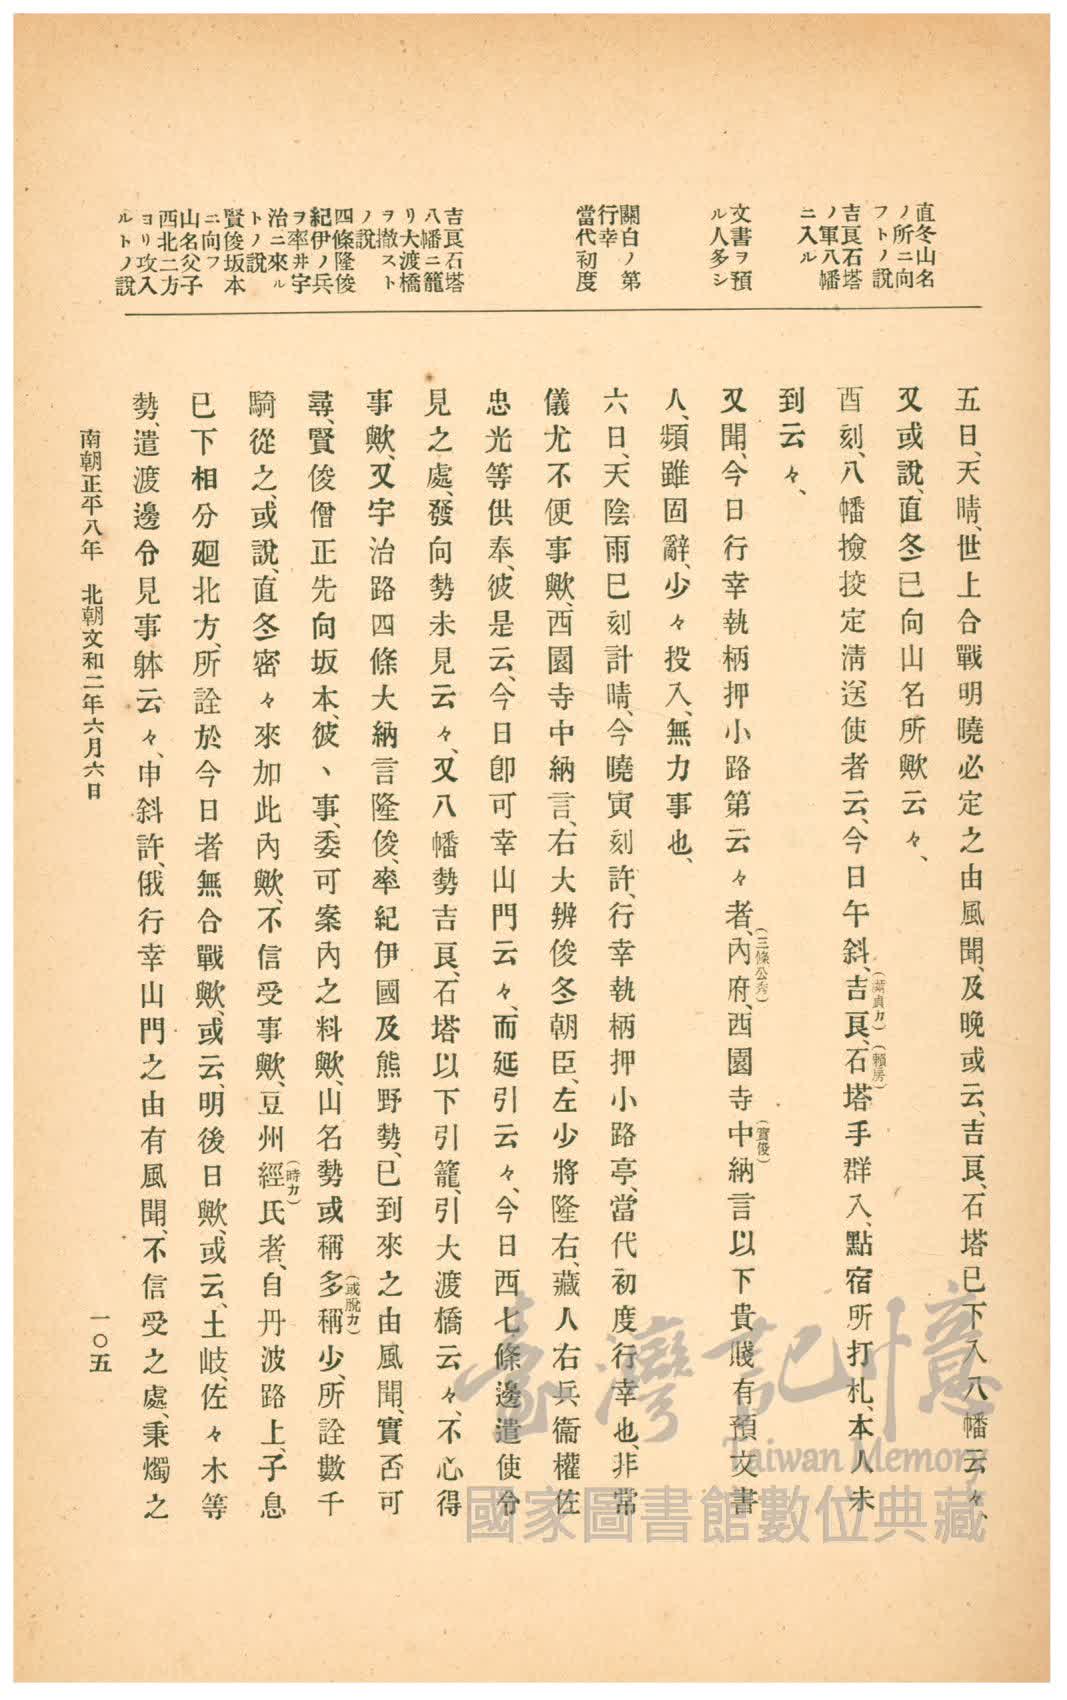 直冬山名
ノ所ニ向
フトノ說
吉良石塔
ノ軍八幡
ニ入ル
文書ヲ預
ル人多シ
關白ノ第
行幸
當代初度
吉良石塔
八幡ニ籠
リ大渡橋
ヲ撤スト
ノ說
四條隆俊
紀伊ノ兵
ヲ率井宇
治ニ來ル
トノ說
賢俊坂本
ニ向フ
山名父子
西北二方
ヨリ攻入
ルトノ說
五日、天晴、世上合戰明曉必定之由風聞、及晚或云、吉良、石塔已下入八幡云々、
又或說、直冬已向山名所歟云々、
酉刻、八幡撿挍定淸送使者云、今日午斜、吉良、石塔手群入、點宿所打札、本人未
(滿貞カ)
(賴房)
到云々、
又聞、今日行幸執柄押小路第云々者、內府、西園寺中納言以下貴賤有預文書
(三條公秀)
(實俊)
人、頻雖固辭、少々投入、無力事也、
六日、天陰雨巳刻計晴、今曉寅刻許、行幸執柄押小路亭、當代初度行幸也、非常
儀尤不便事歟、西園寺中納言、右大辨俊冬朝臣、左少將隆右、藏人右兵衞權佐
忠光等供奉、彼是云、今日卽可幸山門云々、而延引云々、今日西七條邊遣使令
見之處、發向勢未見云々、又八幡勢吉良、石塔以下引籠、引大渡橋云々、不心得
事歟、又宇治路四條大納言隆俊、率紀伊國及熊野勢、已到來之由風聞、實否可
尋、賢俊僧正先向坂本、彼、事、委可案內之料歟、山名勢或稱多稱少、所詮數千
(或脫カ)
騎從之、或說、直冬密々來加此內歟、不信受事歟、豆州經氏者、自丹波路上、子息
(時カ)
已下相分廻北方、所詮於今日者無合戰歟、或云、明後日歟、或云、土岐、佐々木等
勢、遣渡邊令見事躰云々、申斜許、俄行幸山門之由有風聞、不信受之處、秉燭之
南朝正平八年 北朝文和二年六月六日
一〇五
臺灣記憶
Taiwan Memory
國家圖書館數位典藏